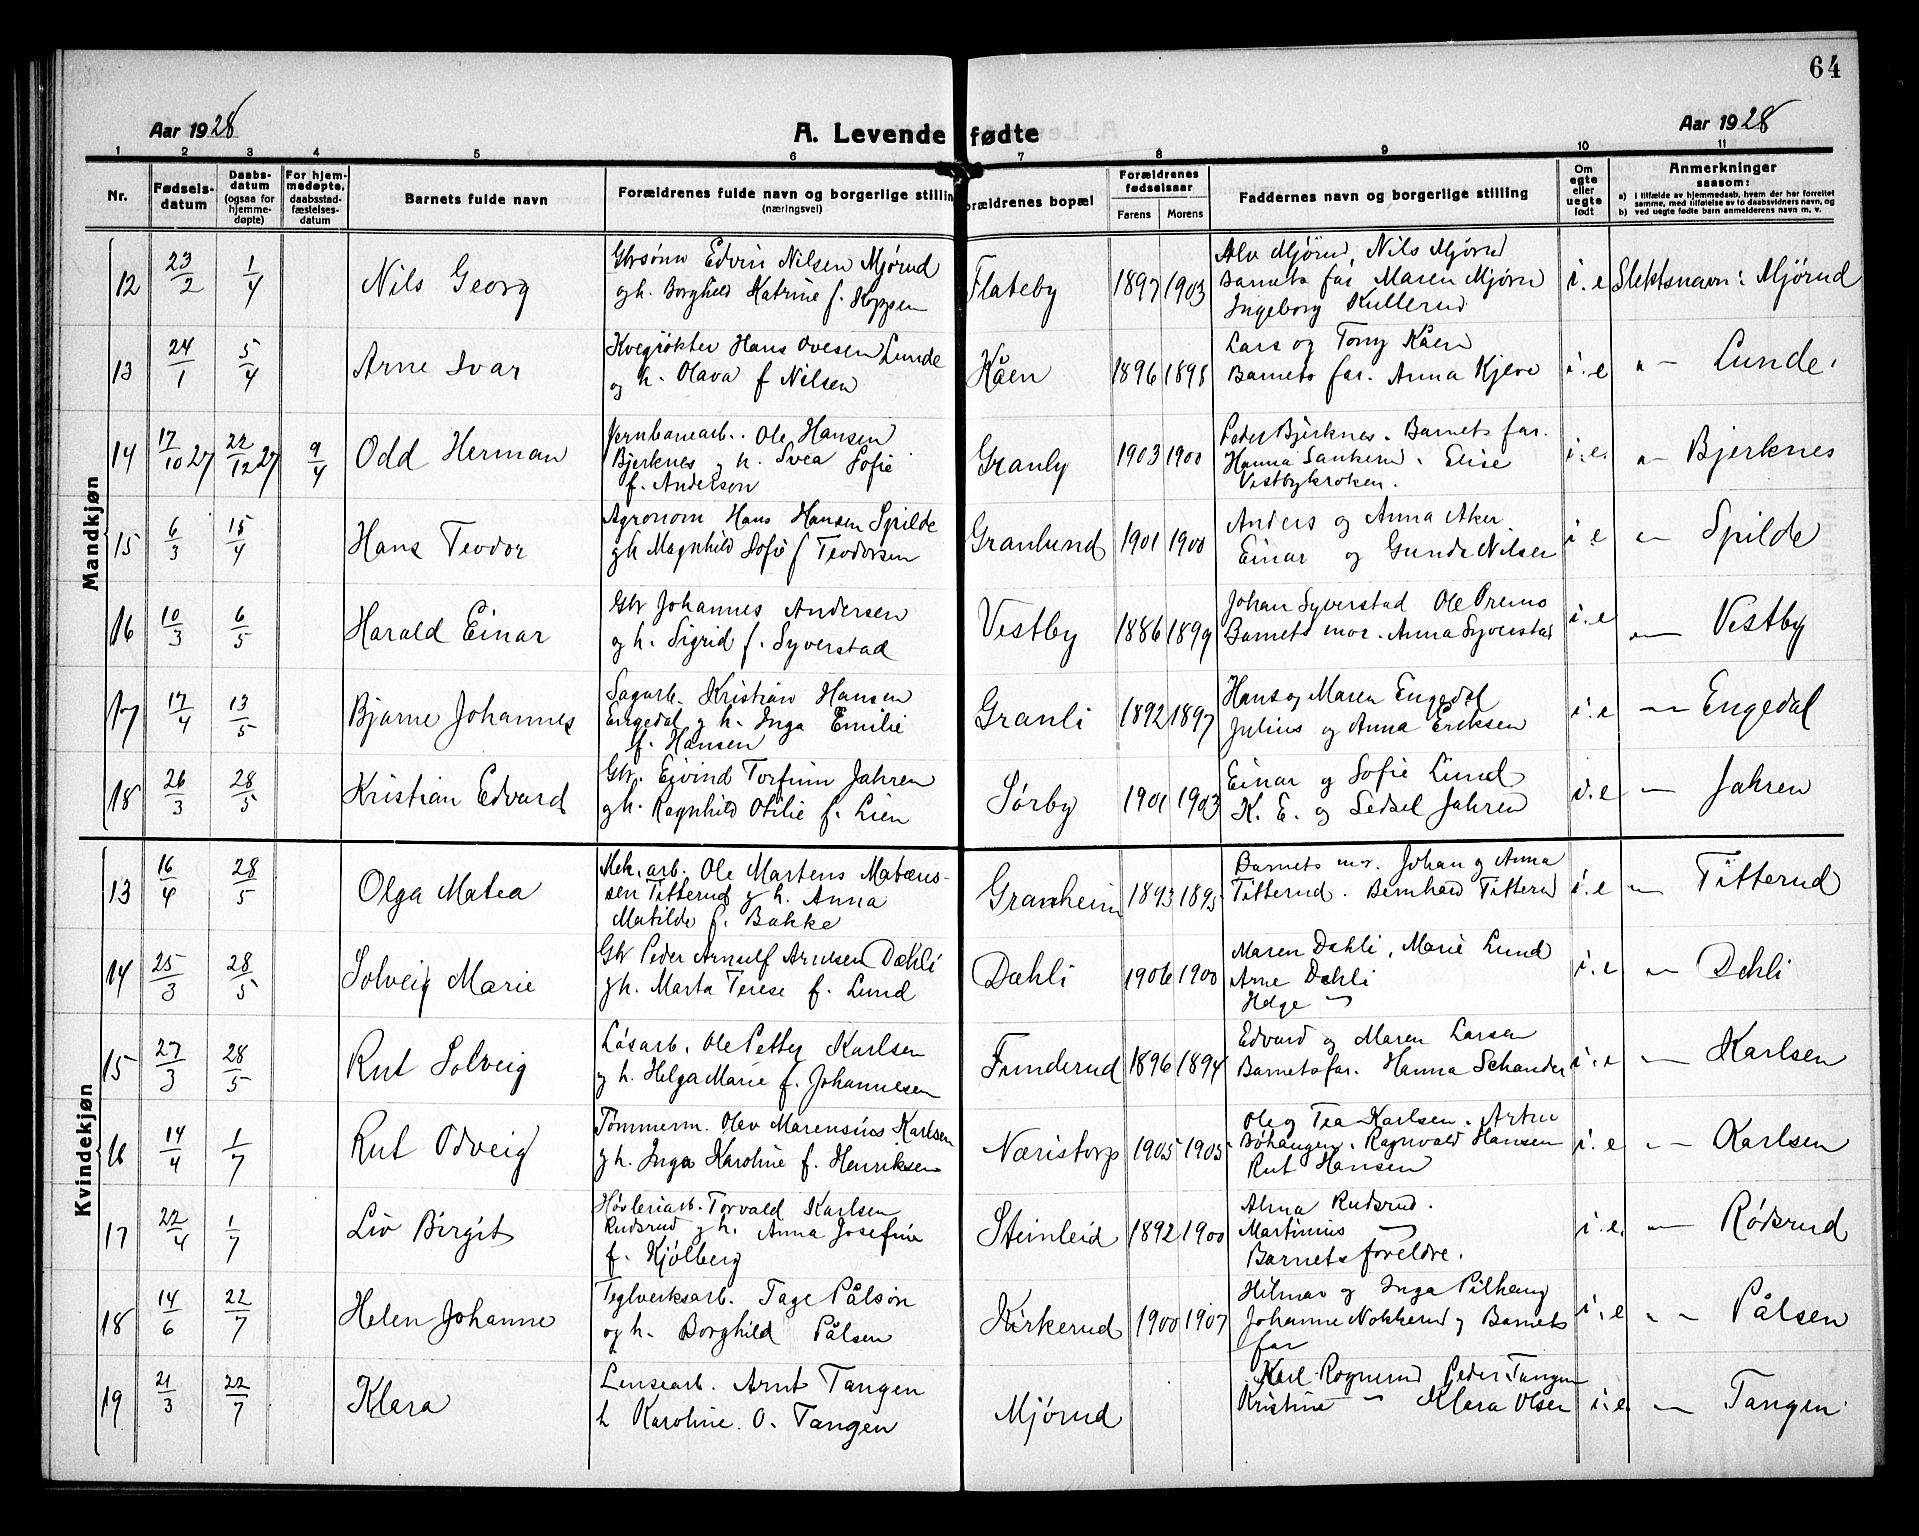 64
Aar 1928
A. Levende fødte
Aar 1928
1 2 3 4 5 6 7 8 9 10 11
Nr.
Fødsels-
datum
Daabs-
datum
(ogsaa for
hjemme-
døpte)
For hjem-
medøpte,
daabsstad-
fæstelses-
datum
Barnets fulde navn
Forældrenes fulde navn og borgerlige stilling
(næringsvei)
orældrenes bopæl
Forældrenes
fødselsaar
Farens
Morens
Faddernes navn og borgerlige stilling
Om
egte
eller
uegte
født
Anmerkninger
saasom:
a) i tilfælde av hjemmedaab, hvem der har forrettet
samme, med tilføielse av to daabsvidners navn, og
b) ved uegte fødte barn anmelderens navn m. v.
Mandkjøn
12 23/2 1/4 Nils Georg
Gbrsønn Edvin Nilsen Mjørud
og h. Borghild Katrine f. Hoppen
Flateby 1897 1903
Alv Mjørud, Nils Mjørud
Barnets far Maren Mjørud
Ingeborg Kullerud
i. e Slektsnavn: Mjørud
13 24/1 5/4 Arne Ivar
Kvegrøkter Hans Ovesen Lunde
og h. Olava f Nilsen
Kåen 1896 1898
Lars og Tony Kåen
Barnets far. Anna Kjeve
i. e " — Lunde.
14 17/10 27 22/12 27 9/4 Odd Herman
Jernbanearb. Ole Hansen
Bjerknes og h. Svea Sofie
f. Anderson
Granly 1903 1900
Peder Bjerknes. Barnets far.
Hanna Sankerud. Elise
Vestbykroken.
i. e. " — Bjerknes
15 6/3 15/4 Hans Teodor
Agronom Hans Hansen Spilde
og h. Magnhild Sofie f Teodorsen
Granlund 1901 1900
Anders og Anna Aker
Einar og Gunda Nilsen
i. e " — Spilde
16 10/3 6/5 Harald Einar
Gbr Johannes Andersen
og h. Sigrid f. Syverstad
Vestby 1886 1899
Johan Syverstad Ole Premo
Barnets mor. Anna Syverstad
i. e " — Vestby
17 17/4 13/5 Bjarne Johannes
Sagarb. Kristian Hansen
Engedal og h. Inga Emilie
f. Hansen
Granli 1892 1897
Hans og Maren Engedal
Julius og Anna Eriksen
i. e " — Engedal
18 26/3 28/5 Kristian Edvard
Gbr. Eivind Torfinn Jahren
og h. Ragnhild Otilie f. Lien
Sørby 1901 1903
Einar og Sofie Lund
K. E. og Sedsel Jahren
i. e " — Jahren
Kvindekjøn
13 16/4 28/5 Olga Matea
Mek. arb. Ole Martens Matæus-
sen Titterud og h. Anna
Matilde f. Bakke
Granheim 1893 1895
Barnets mor. Johan og Anna
Titterud. Bernhard Titterud
i. e " — Titterud
14 25/3 28/5 Solveig Marie
Gbr Peder Arnulf Arnesen Dæhli
og h. Marta Terese f. Lund
Dæhli 1906 1900
Maren Dæhli, Marie Lund
Arne Dæhli
Helge —
i. e " — Dæhli
15 27/3 28/5 Rut Solveig
Løsarb. Ole Petter Karlsen
og h. Helga Marie f. Johannesen
Funderud 1896 1894
Edvard og Maren Larsen
Barnets far. Hanna Schander
i. e " — Karlsen
16 14/4 1/7 Rut Odveig
Tømmerm. Olev Marensius Karlsen
og h. Inga Karoline f. Henriksen
Næristorp 1905 1905
Ole og Tea Karlsen. Artur
Bøhaugen. Ragnvald Hansen
Rut Hansen
i. e " — Karlsen
17 22/4 1/7 Liv Birgit
Høvleriarb. Torvald Karlsen
Rudsrud og h. Anna Josefine
f. Kjølberg
Steinleid 1892 1900
Alma Rudsrud.
Martinius —
Barnets foreldre.
i. e. " — Rødsrud
18 14/6 22/7 Helen Johanne
Teglverksarb. Tage Pålsøn
og h. Borghild Pålsen
Kirkerud 1900 1907
Hilmar og Inga Pilhaug
Johanne Nokkerud og Barnets
far
i. e " — Pålsen
19 21/3 22/7 Klara
Lensearb. Arnt Tangen
h Karoline O. Tangen
Mjørud
Karl Rognerud Peder Tangen
Kristine — Klara Olsen
i. e. " — Tangen